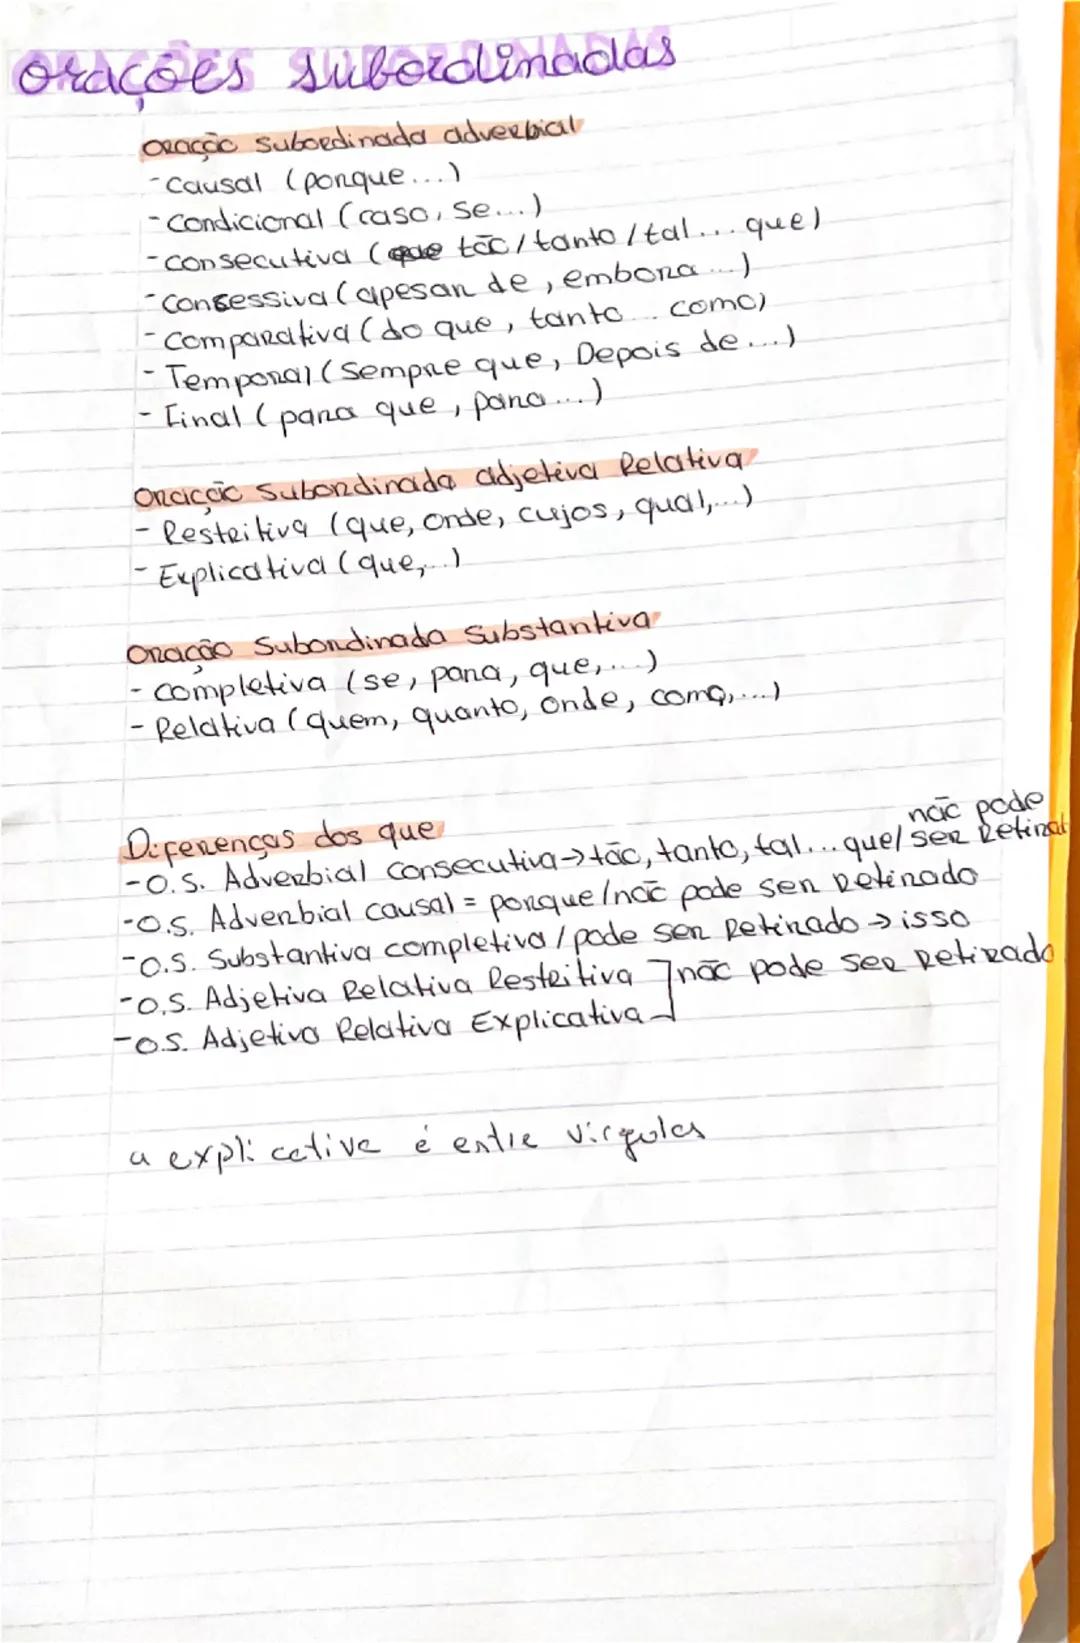 orações subordinadas
oração subordinada adverbial
- Causal (porque...)
- Condicional (caso, se...)
- consecutiva (tão/tanto/tal... que)
- Consessiva (apesar de, embora...)
- Comparativa (do que, tanto... como)
- Temporal (Sempre que, Depois de...)
- Final (para que, para...)
oração subordinada adjetiva Relativa
- Restritiva (que, onde, cujos, qual,...)
- Explicativa (que,...)
oração Subordinada Substantiva
- Completiva (se, para, que,...)
- Relativa (quem, quanto, onde, como,...)
Diferenças dos que
não pode
-O.S. Adverbial Consecutiva→tão, tanto, tal... que/ ser Retirar
-O.S. Adverbial causal = porque/não pode ser retirado
-O.S. Substantiva completiva/pode ser Retirado → isso
-O.S. Adjetiva Relativa Restritiva ]não pode ser retirado
-O.S. Adjetiva Relativa Explicativa
a explicative é entre vírgulas